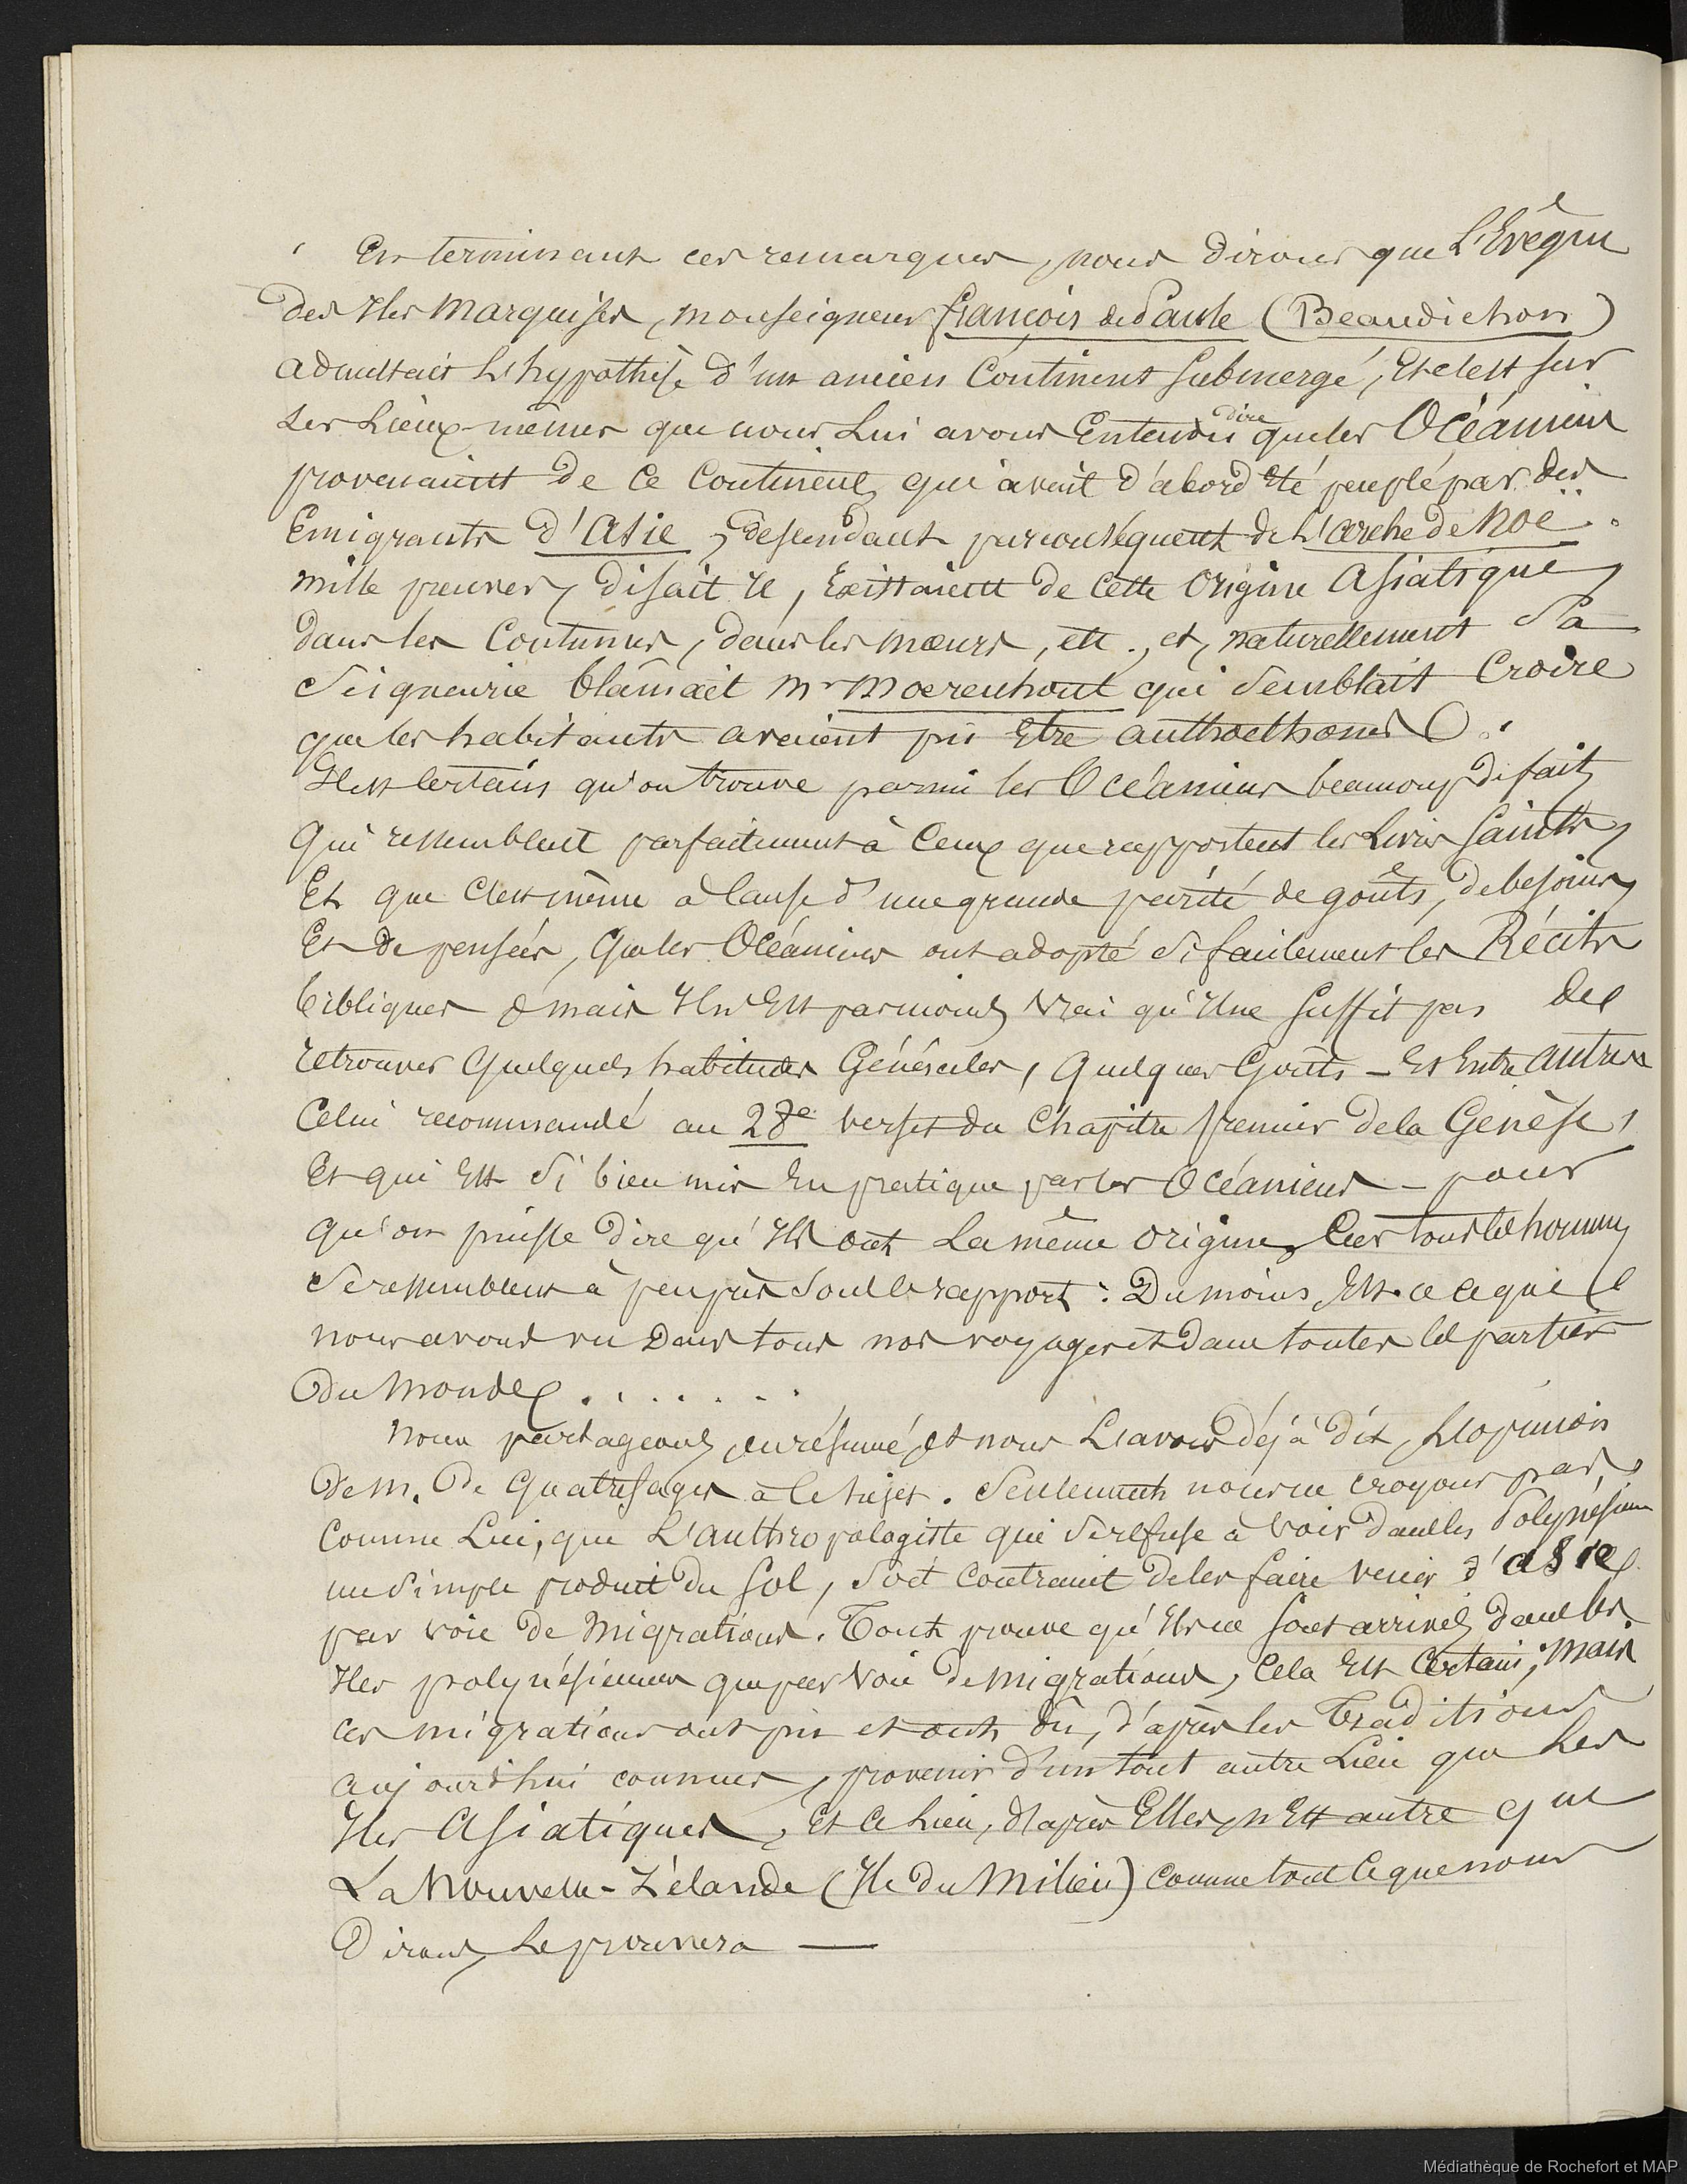 En terminant ces remarques, nous dirons que L'Evêque
des Iles Marquises, Monseigneur françois de Paule (Beaudichon)
admettait L'hypothèse d'un ancien Continent submergé, Et c'est sur
Les Lieux-mêmes que nous Lui avons Entendu dire que les Océániens
provenaient de Ce Continent, qui avait d'abord Eté peuplé par des
Emigrants d'Asie, descendant par conséquent de L'arche de Noë.
Mille preuves, disait Il, Existaient de Cette Origine Asiatique,
dans les Coutumes, dans les mœurs, etc., et, naturellement Sa
Seigneurie blâmait Mr Moerenhout qui Semblait Croire
que les habitants avaient pu Etre authocthones.
Il est Certain qu'on trouve parmi les Océaniens beaucoup de faits
Qui ressemblent parfaitement à Ceux que rapportent les Livres Saints,
Et que C'est même à Cause d'une grande parité de goûts, de besoins,
Et de pensées, que les Océaniens ont adopté Si facilement les Récits
bibliques; mais Il n'Est pas moins Vrai qu'Il ne Suffit pas de
retrouver Quelques habitudes Générales, Quelques Goûts - Et Entre autres
Celui recommandé au 28e verset du Chapitre premier de la Genèse,
Et qui Est Si bien mis En pratique par les Océaniens - pour
Qu'on puisse dire qu'Ils ont La même Origine, Car tous les hommes
Se ressemblent à peu près Sous ce rapport: Du moins, Est-ce ce que
nous avons vu Dans tous nos voyages et dans toutes les parties
Du Monde. . . . . . .
Nous partageons, en résumé, Et nous L'avons Déjà dit, L'opinion
De M. De Quatrefages à Ce Sujet. Seulement nous ne croyons pas,
Comme Lui, que L'anthropologiste qui Se refuse à Voir dans les Polynésiens
un Simple produit du Sol, Soit Contraint de les faire venir d'asie
par voie de Migrations. Tout prouve qu'Ils ne Sont arrivés dans les
Iles polynésiennes que par Voie de Migrations, Cela Est Certain; Mais
Ces Migrations ont pu et ont dû, d'après les Traditions
aujourd'hui connues, provenir d'un tout autre Lieu que Les
Iles Asiatiques, Et Ce Lieu, d'après Elles, n'Est autre que
La Nouvelle-Zélande (Ile du Milieu) Comme tout Ce que nous
Dirons, Le prouvera —
Médiathèque de Rochefort et MAP